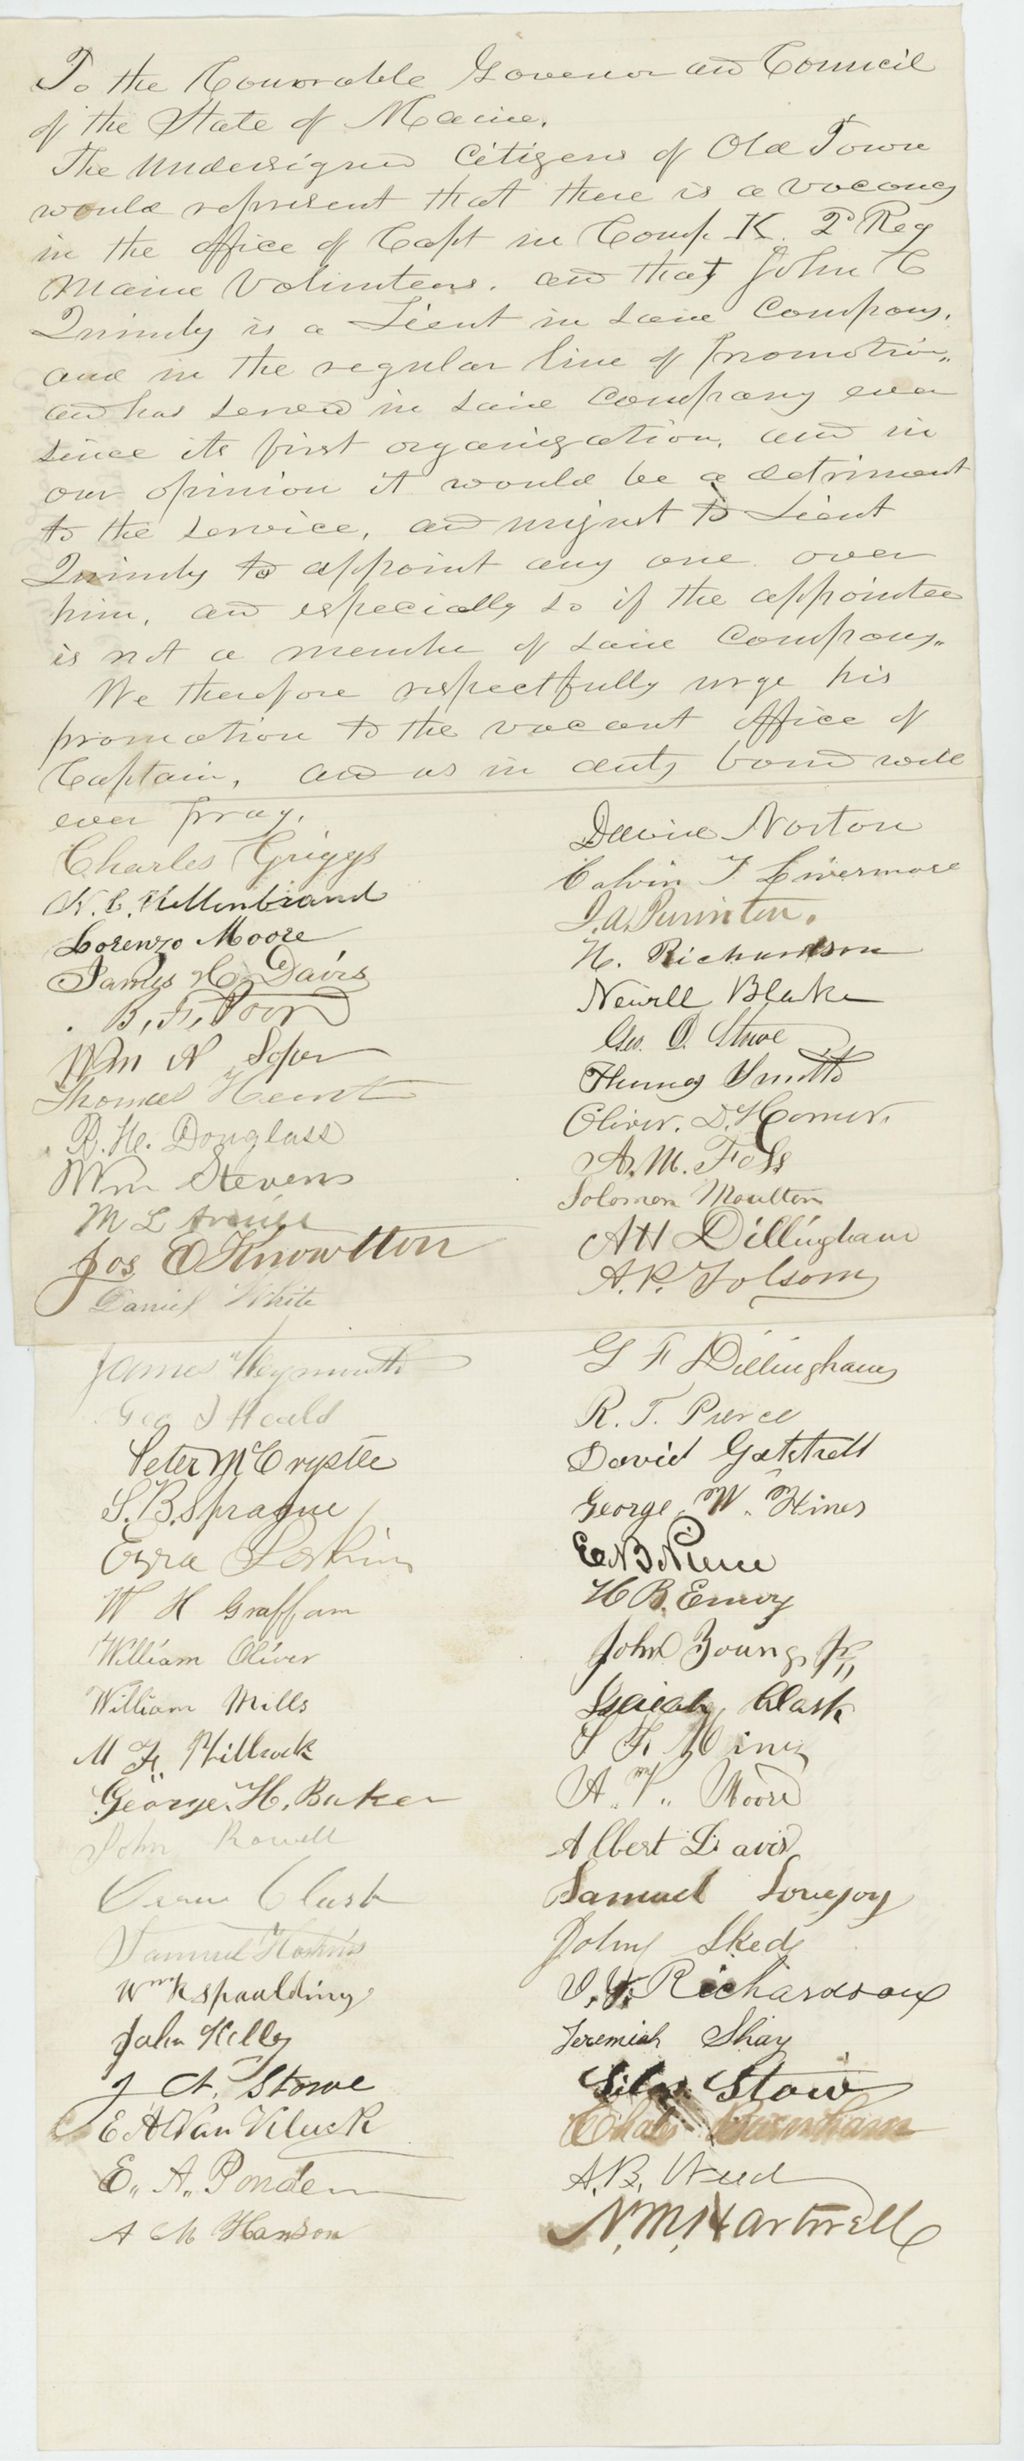 To the Honorable Governor and Council
of the State of Maine.
The Undersigned Citizens of Old Town
would represent that there is a vacancy
in the office of Capt in Comp. K. 2d Reg
Maine Volunteers. and that John C
Quimby is a Lieut in said Company.
and in the regular line of promotion,
and has served in said Company ever
since its first organization, and in
our opinion it would be a detriment
to the service, and unjust to Lieut
Quimby to appoint any one over
him, and especially so if the appointee
is not a member of said Company.
We therefore respectfully urge his
promotion to the vacant office of
Captain, and as in duty bound will
ever pray.
Charles Griggs
Lorenzo Moore
James H. Davis
B. F. Poor
Wm N Soper
Thomas Hewit
R. H. Douglass
Wm Stevens
M L
Jos E Knowlton
Daniel White
James Weymouth
Geo Heald
Peter McCrystle
S. B. Sprague
Ezra
W H Graffam
William Oliver
William Mills
M F.
George. H. Baker
John Rowell
Clark
Samuel Hoskins
Wm R Spaulding
John Kelly
J A. Stowe
E A Van
E. A.
A M Hanson
Norton
Calvin T Livermore
J. A. Purinton.
H. Richardson
Newell Blake
Geo. O. Stowe
Smith
Oliver. D. Homer.
A. M. Foss
Solomon Moulton
A H Dillingham
A. P. Folsom
G F Dillingham
R. T. Pierce
David
George. W. Hines
E. B. Pierce
H B. Emery
John Young, Jr.
Isaiah Clark
S F.
A. Moore
Albert Davis
Samuel Lovejoy
John Sked
Richardson
Jeremiah Shay
Silas Stow
Chas Burnham
A. B. Weed
N. M. Hartwell